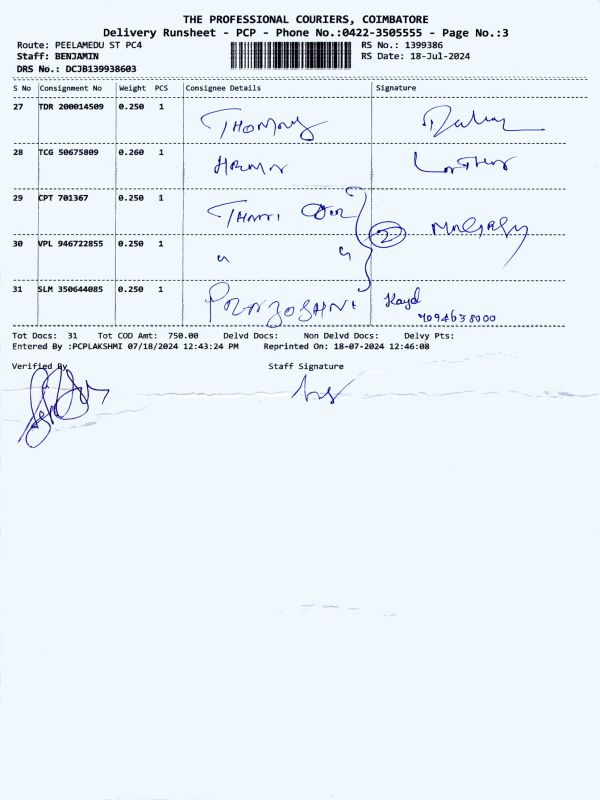 THE PROFESSIONAL COURIERS, COIMBATORE
Delivery Runsheet - PCP - Phone No.:0422-3505555 - Page No.:3
Route: PEELAMEDU ST PC4 RS No.: 1399386
Staff: BENJAMIN RS Date: 18-Jul-2024
DRS No.: DCJB139938603
S No Consignment No Weight PCS Consignee Details Signature
27 TDR 200014509 0.250 1
28 TCG 50675809 0.260 1
29 CPT 701367 0.250 1
2
30 VPL 946722855 0.250 1 " "
31 SLM 350644085 0.250 1
Tot Docs: 31 Tot COD Amt: 750.00 Delvd Docs: Non Delvd Docs: Delvy Pts:
Entered By :PCPLAKSHMI 07/18/2024 12:43:24 PM Reprinted On: 18-07-2024 12:46:08
Verified By Staff Signature